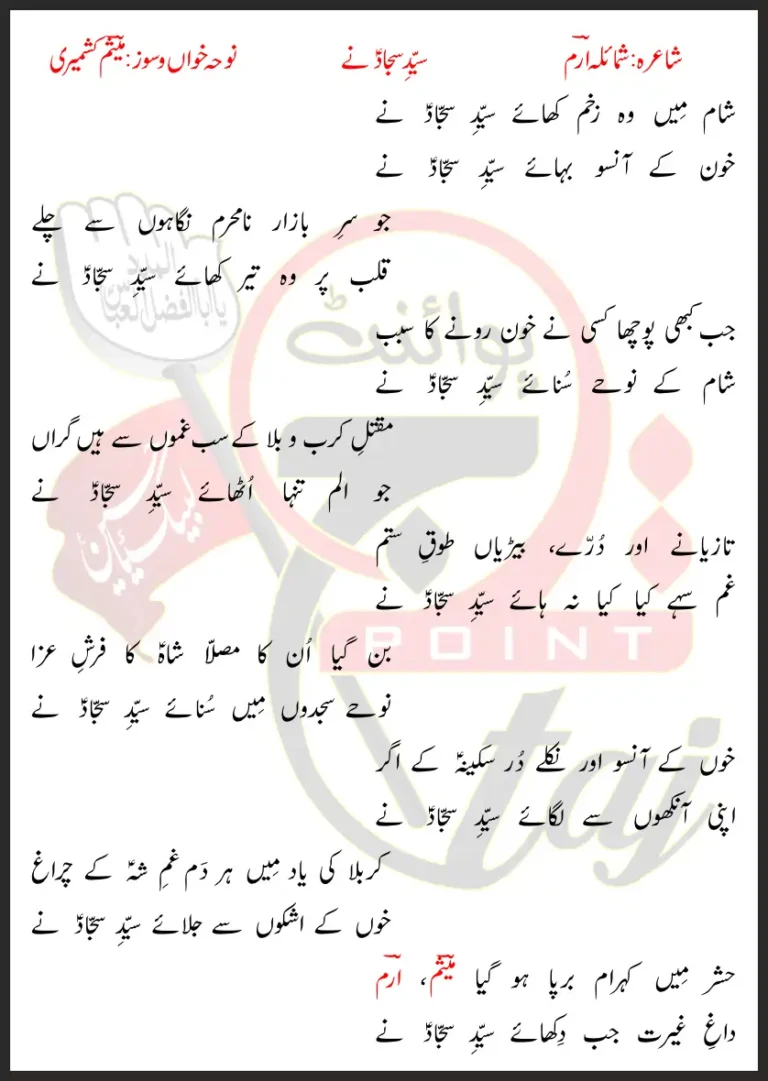 شاعرہ: شمائلہ ارمؔ سیّدِ سجادؑ نے نوحہ خواں و سوز: میثمؔ کشمیری
شام مِیں وہ زخم کھائے سیّدِ سجّادؑ نے
خون کے آنسو بہائے سیّدِ سجّادؑ نے
جو سرِ بازار نامحرم نگاہوں سے چلے
قلب پر وہ تیر کھائے سیّدِ سجّادؑ نے
جب کبھی پوچھا کسی نے خون رونے کا سبب
شام کے نوحے سُنائے سیّدِ سجّادؑ نے
مقتلِ کرب و بلا کے سب غموں سے ہیں گراں
جو الم تنہا اُٹھائے سیّدِ سجّادؑ نے
تازیانے اور دُرّے، بیڑیاں طوقِ ستم
غم سہے کیا کیا نہ ہائے سیّدِ سجّادؑ نے
بن گیا اُن کا مصلّا شاہؑ کا فرشِ عزا
نوحے سجدوں مِیں سُنائے سیّدِ سجّادؑ نے
خوں کے آنسو اور نکلے دُر سکینہؑ کے اگر
اپنی آنکھوں سے لگائے سیّدِ سجّادؑ نے
کربلا کی یاد مِیں ہر دَم غمِ شہؑ کے چراغ
خوں کے اشکوں سے جلائے سیّدِ سجّادؑ نے
حشر مِیں کہرام برپا ہو گیا میثمؔ، ارمؔ
داغِ غیرت جب دِکھائے سیّدِ سجّادؑ نے
المدد
یا ابا الفضل العباس
لبیک یا حسین
پوائنٹ
POINT
taj